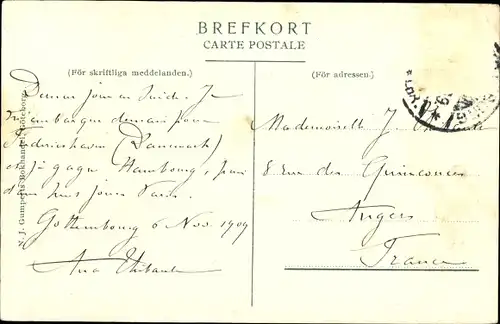 BREFKORT
CARTE POSTALE
(För skriftliga meddelanden.)
(För adressen.)
Dernier jour en Suède. Je
m'embarque demain pour
Frederikshavn (Danmark)
et je gagne Hambourg, puis
dans huit jours Paris.
Gothembourg 6 Nov. 1909
Ana Thibault
Mademoiselle J.
8 rue des Quinconces
Angers
France
N. J. Gumperts Bokhandel, Göteborg.